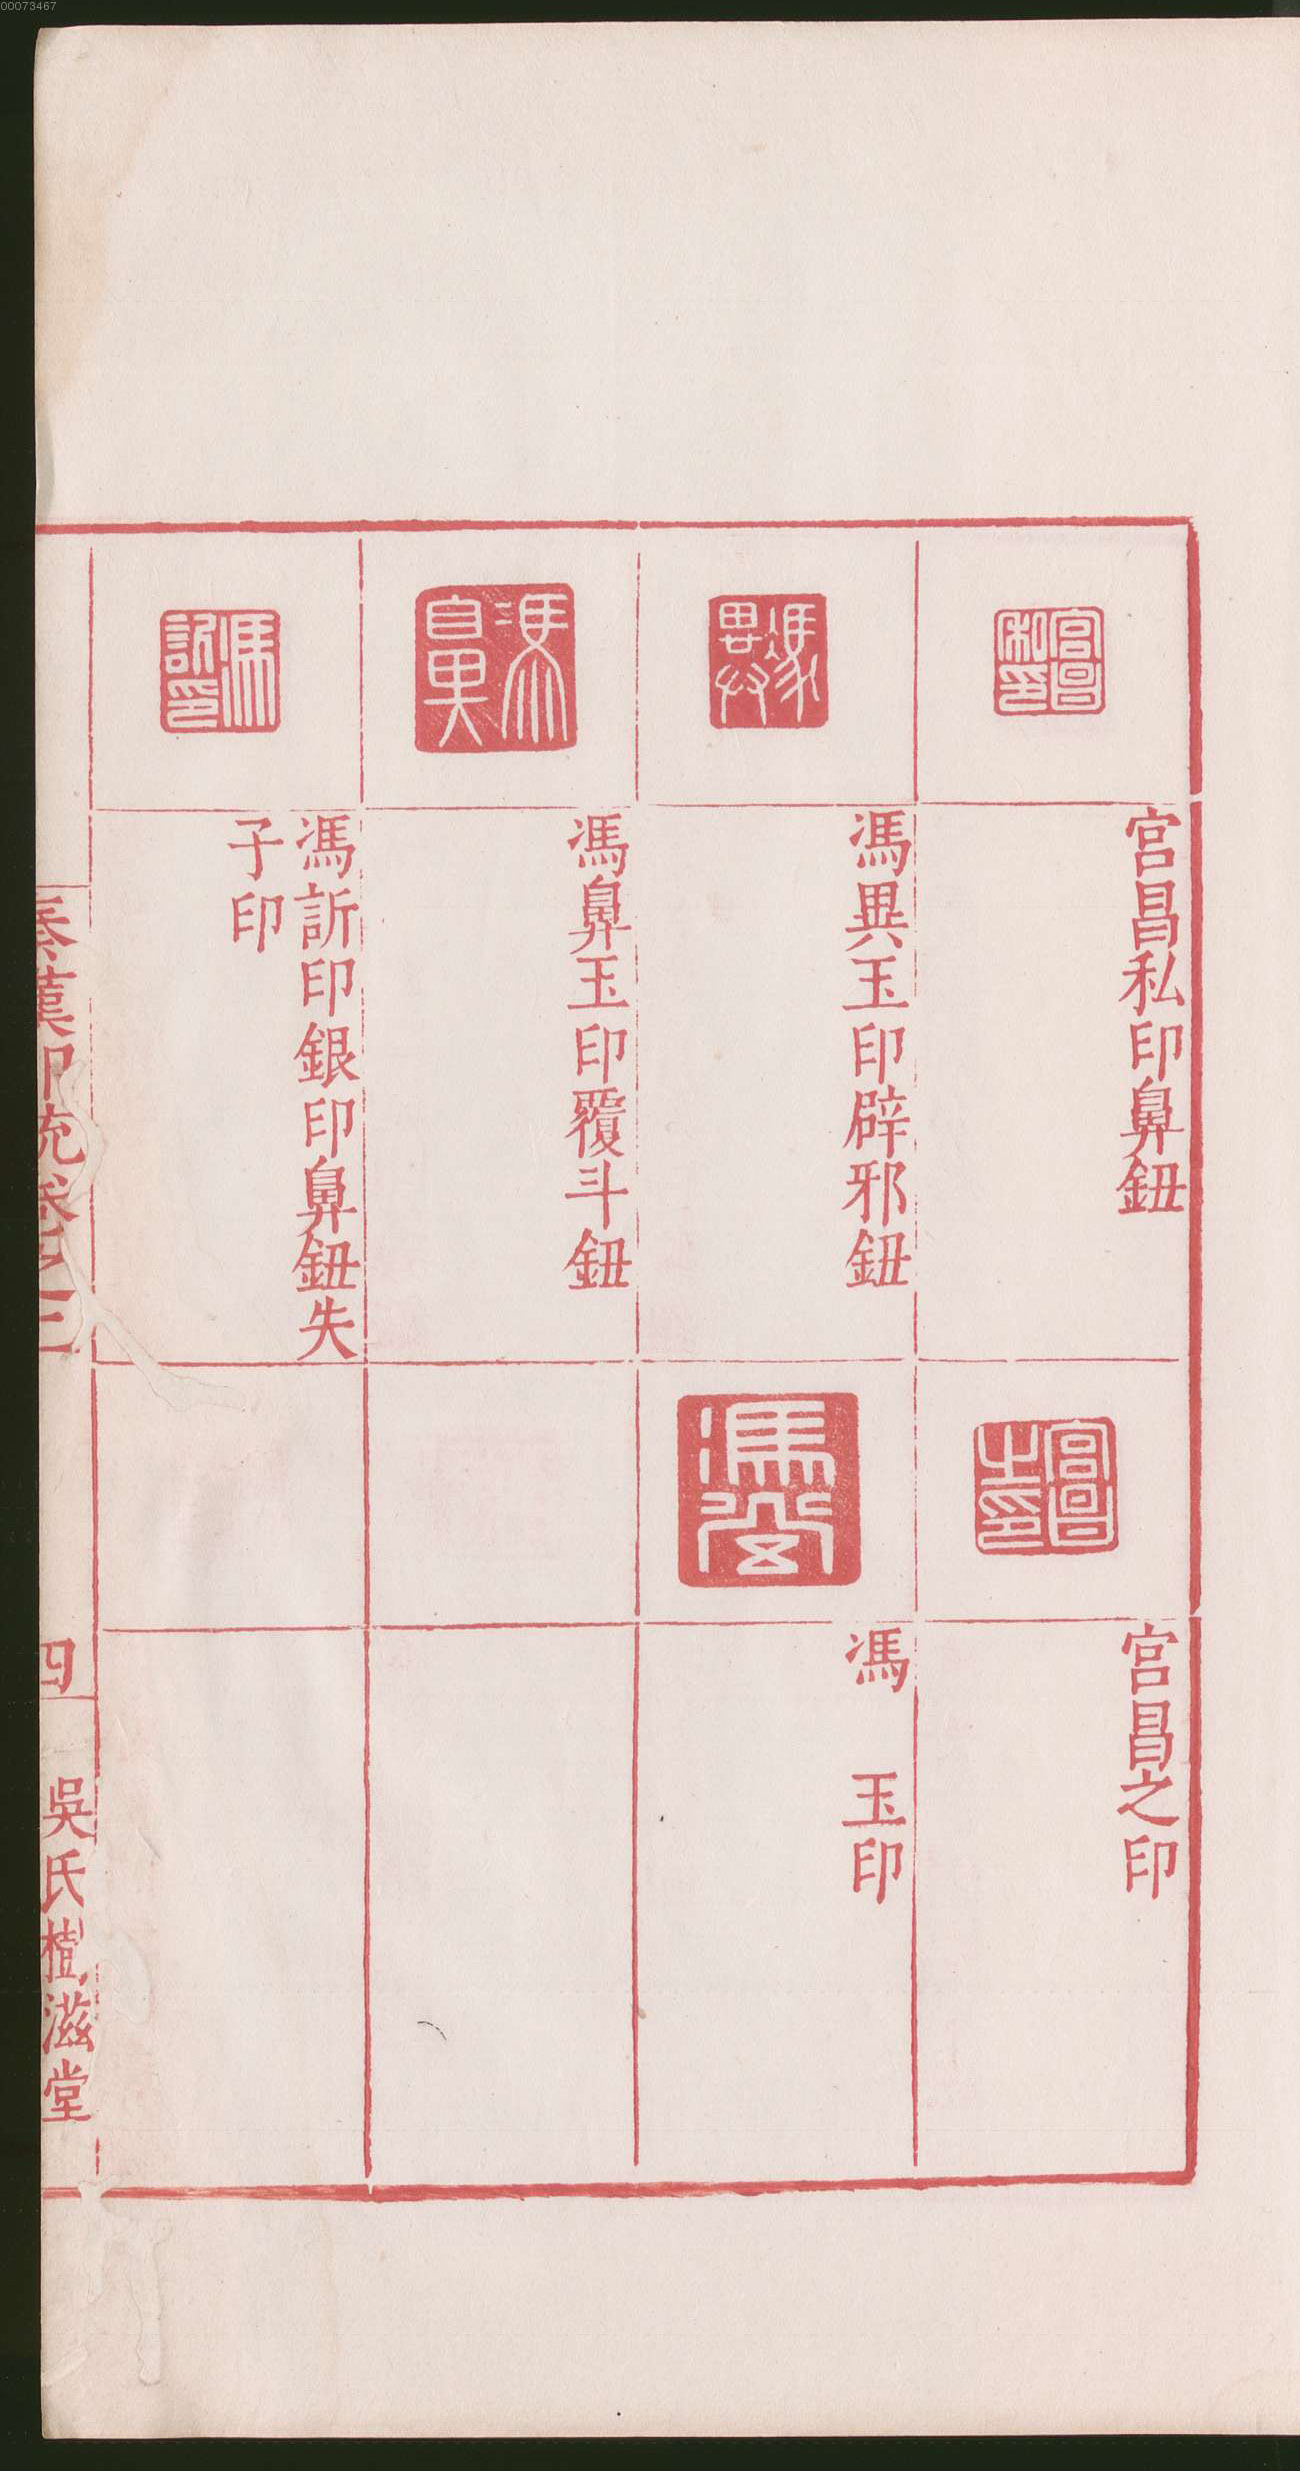 00073467
宮昌私印
宮昌私印鼻鈕
宮昌之印
宮昌之印
馮異
馮異玉印辟邪鈕
馮
馮　玉印
馮鼻
馮鼻玉印覆斗鈕
馮訢印
馮訢印銀印鼻鈕失
子印
秦漢印統卷之三
四
吳氏樹滋堂